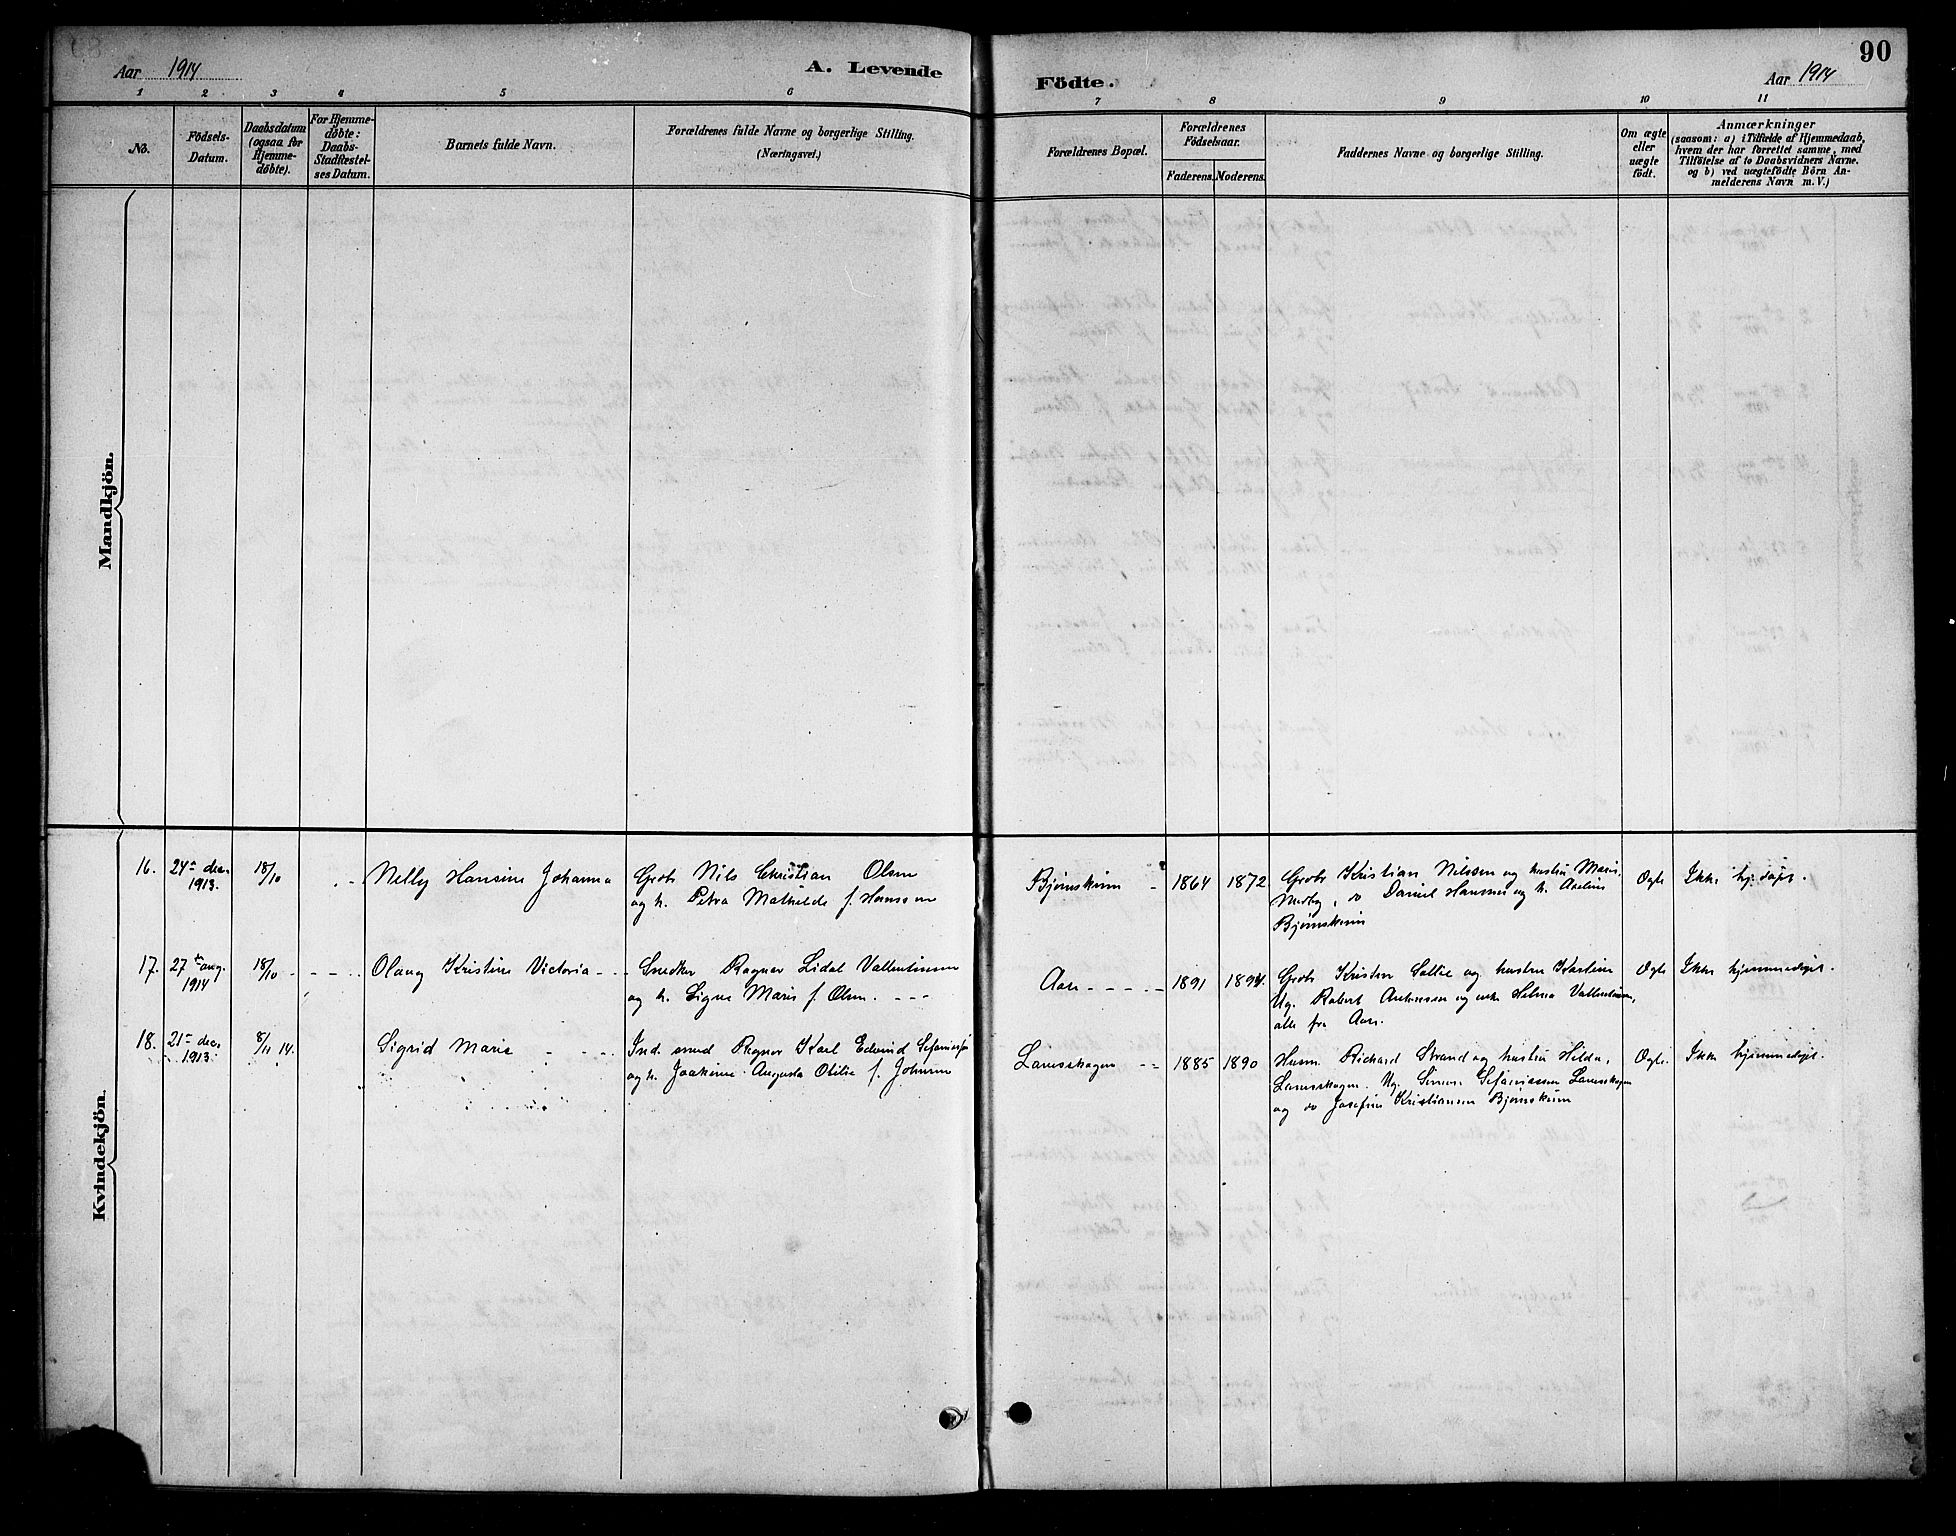 Aar 1914
A. Levende
Födte.
Aar 1914
90
1 2 3 4 5 6 7 8 9 10 11
No.
Födsels-
Datum.
Daabsdatum
(ogsaa for
Hjemme-
døbte).
For Hjemme-
døbte:
Daabs-
Stadfæstel-
ses Datum.
Barnets fulde Navn.
Forældrenes fulde Navne og borgerlige Stilling.
(Næringsvei.)
Forældrenes Bopæl.
Forældrenes
Födselsaar.
Faderens. Moderens.
Faddernes Navne og borgerlige Stilling.
Om ægte
eller
uægte
födt.
Anmærkninger
(saasom: a) i Tilfælde af Hjemmedaab,
hvem der har forrettet samme, med
Tilföielse af to Daabsvidners Navne.
og b) ved uægtefödte Börn An-
melderens Navn m. V.)
Mandkjön.
Kvindekjön.
16. 24 dec. 1913. 18/10 Nelly Hansine Johanna
Grbr Nils Christian Olsen
og h. Petra Mathilde f. Hanssen
Bjørnskinn 1864 1872
Grbr Kristian Nilssen og hustru Marie,
Medby, do Daniel Hanssen og h. Axeline
Bjørnskinn
Ægte Ikke hj. døpt.
17. 27 aug. 1914 18/10 Olaug Kristine Victoria
Snedker Ragnar Lidal Vallentinsen
og h. Signe Marie f. Olsen.
Aase 1891 1894.
Grbr Kristen og hustru
Ug. Robert og enke Helma Vallentinsen,
alle fra Aase.
Ægte Ikke hjemmedøpt.
18. 21 dec. 1913. 8/11 14. Sigrid Marie
Ind. smed Ragnar Karl Edvind
og h. Joakime Augusta Otilie f. Johnsen
Lanesskogen 1885 1890
Husm. Richard Strand og hustru Hilda,
Lanesskogen. Ug. Simon Sefaniassen Lanesskogen
og do Josefine Kristiansen Bjørnskinn
Ægte. Ikke hjemmedøpt.